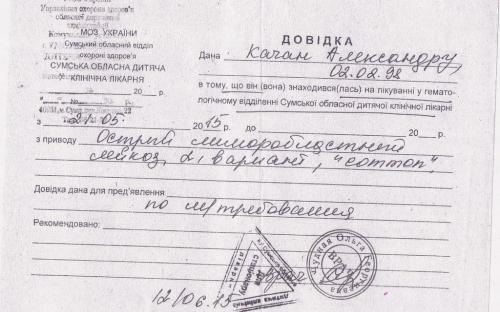 Управління охорони здоров'я
обласної державної
МОЗ УКРАЇНИ
Сумський обласний відділ
охорони здоров'я
СУМСЬКА ОБЛАСНА ДИТЯЧА
КЛІНІЧНА ЛІКАРНЯ
20 р.
ДОВІДКА
Дана Качан Александру,
02.02.98
в тому, що він (вона) знаходився(лась) на лікуванні у гемато-
логічному відділенні Сумської обласної дитячої клінічної лікарні
з 21/05. 2015 р. до 20 р.
з приводу Острый лимфобластный
лейкоз, 2, вариант, "common".
Довідка дана для пред'явлення
по м/требования
Рекомендовано:
Чудная Ольга Георгиевна
ВРАЧ
Для
довідок
12/06.15